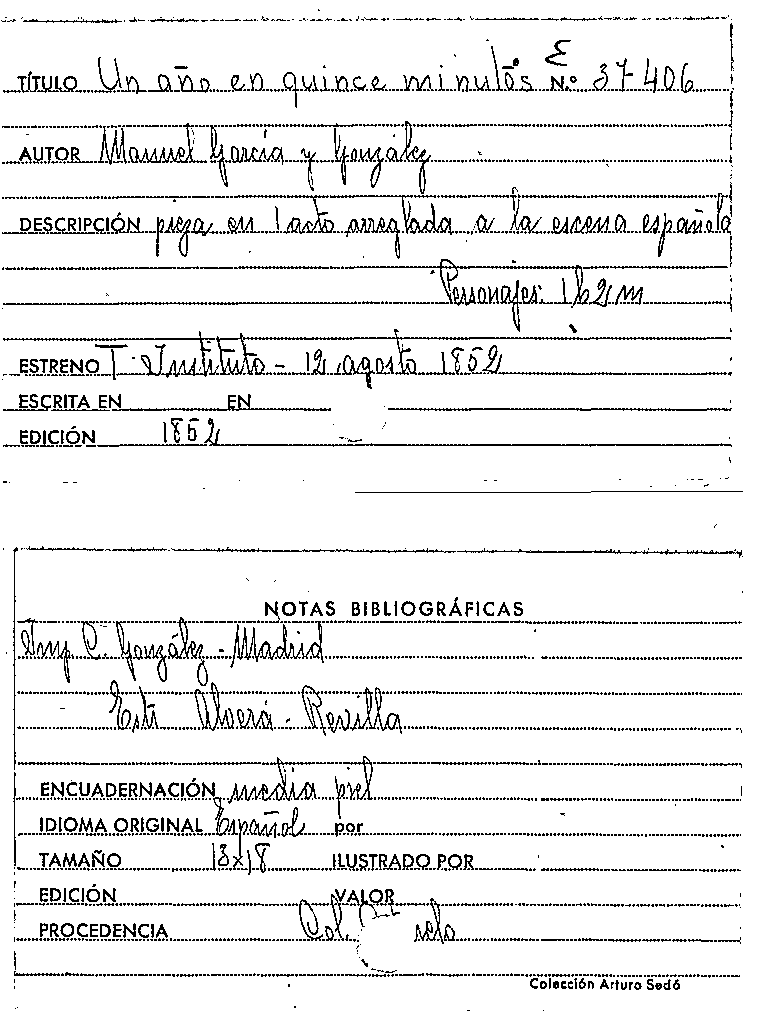 TÍTULO Un año en quince minutos N.º 37406
AUTOR Manuel García y González
DESCRIPCIÓN pieza en 1 acto arreglada a la escena española
Personajes: 1 h 2 m
ESTRENO T. Instituto - 12 agosto 1852
ESCRITA EN EN
EDICIÓN 1852
NOTAS BIBLIOGRÁFICAS
Imp C. González - Madrid
Alverá - Revilla
ENCUADERNACIÓN media piel
IDIOMA ORIGINAL Español por
TAMAÑO 13x18 ILUSTRADO POR
EDICIÓN VALOR
PROCEDENCIA Col.
Colección Arturo Sedó